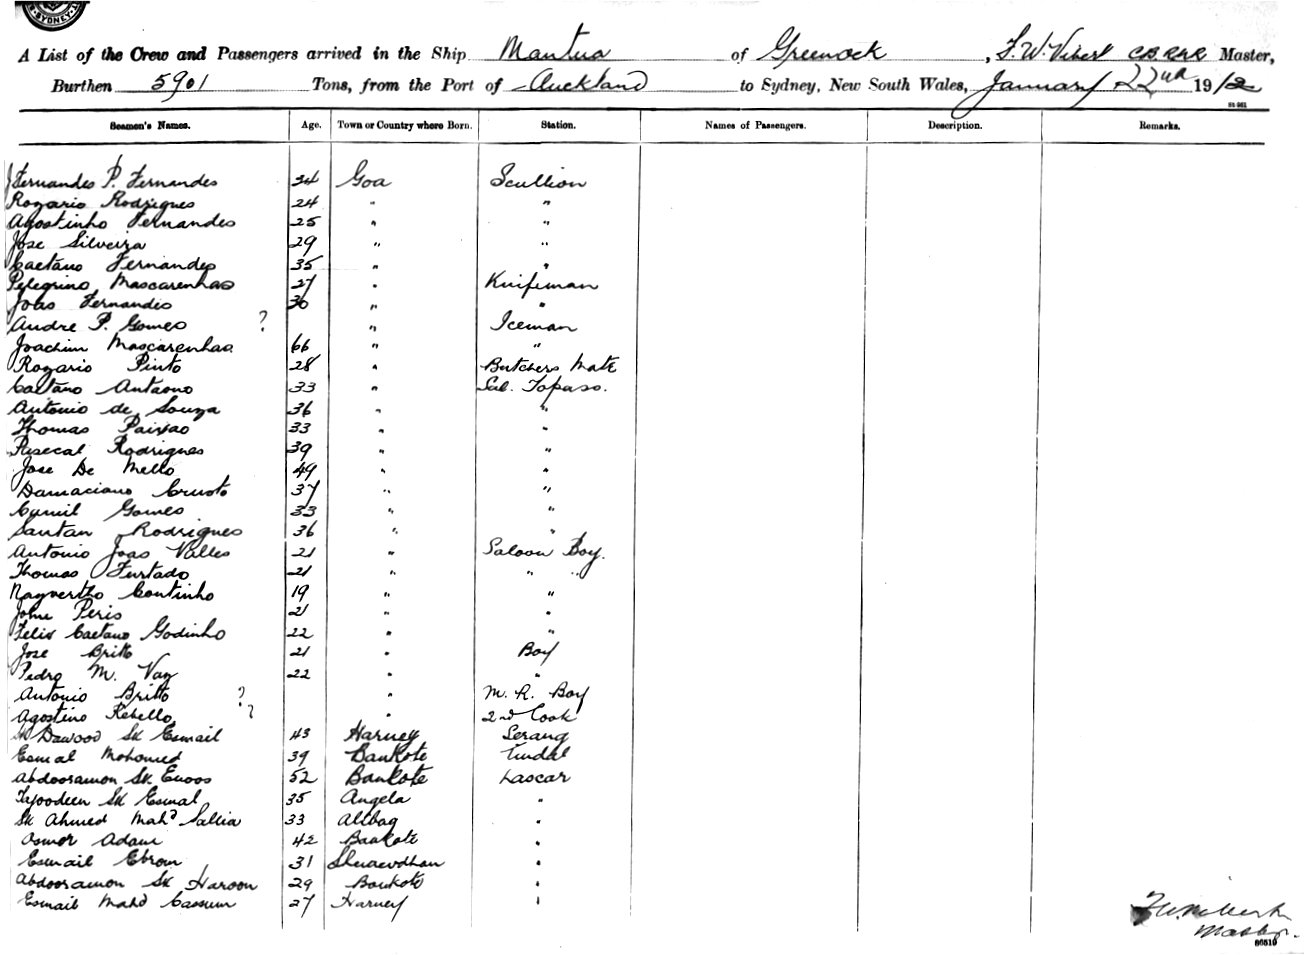 SYDNEY
A List of the Crew and Passengers arrived in the Ship Mantua of Greenock, F. W. Vibert C.B. R.N.R. Master,
Burthen 5901 Tons, from the Port of Auckland to Sydney, New South Wales, January 22nd 1912
Seamen's Names. Age. Town or Country where Born. Station. Names of Passengers. Description. Remarks.
Fernandes P. Fernandes 34 Goa Scullion
Rozario Rodrigues 24 " "
Agostinho Fernandes 25 " "
Jose Silveira 29 " "
Caetano Fernandes 35 " "
Pelegrino Mascarenhas 27 " Knifeman
Joao Fernandes 30 " "
Andre P. Gomes ? " Iceman
Joachim Mascarenhas 66 " "
Rozario Pinto 28 " Butchers Mate
Caetano Antaono 33 " Sal. Topaso.
Antonio de Souza 36 " "
Thomas Paixao 33 " "
Pascal Rodrigues 39 " "
Jose De Mello 49 " "
Damaciano 37 " "
Gomes 33 " "
Santan Rodrigues 36 " "
Antonio Joao Valles 21 " Saloon Boy.
Thomas Furtado 21 " " "
Coutinho 19 " "
John Peris 21 " "
Felix Caetano Godinho 22 " "
Jose Britto 21 " Boy
Pedro M. Vaz 22 " "
Antonio Britto ? " M. R. Boy
Agostino Rebello ? " 2nd Cook
Sk Dawood Sk Esmail 43 Harney Serang
Esmal Mohomed 39 Bankote Tindal
Abdooramon Sk Enoos 52 Bankote Lascar
Tajoodeen Sk Esmal 35 Angela "
Sk Ahmed Mahd Sallia 33 Alibag "
Osmon Adam 42 Bankote "
Esmail Ebrom 31 "
Abdooramon Sk Haroon 29 Bankote "
Esmail Mahd Cassum 27 Harney "
F. W. Vibert
Master.
86519